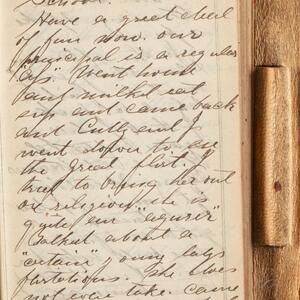 School.
Have a great deal
of fun now. our
principal is a regular
" Went home
and milked eat
and came back
and Cully and I
went down to
the great flirt. I
tried to bring her out
on religion. she is
quite an
Talked about a
"certain" young ladys
flirtations. She does
not take. Came